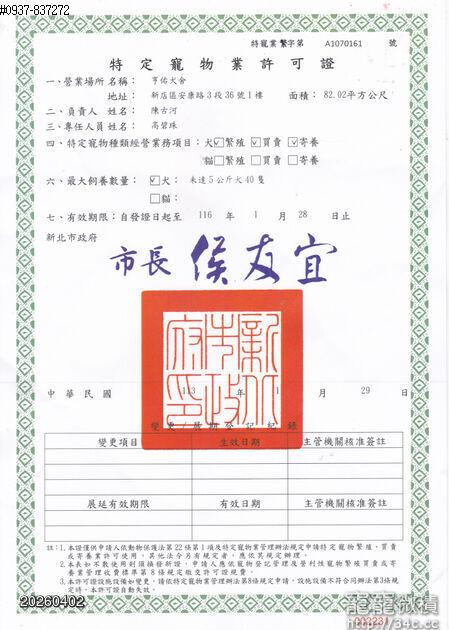 #0937-837272
特寵業繁字第 A1070161 號
特定寵物業許可證
一、營業場所名稱： 亨佑犬舍
地址： 新店區安康路3段36號1樓 面積： 82.02平方公尺
二、負責人姓名： 陳古河
三、專任人員姓名： 高碧珠
四、特定寵物種類經營業務項目： 犬☑繁殖 ☑買賣 ☑寄養
貓□繁殖 □買賣 □寄養
六、最大飼養數量： ☑犬： 未達5公斤犬40隻
□貓：
七、有效期限：自發證日起至 116 年 1 月 28 日止
新北市政府
市長 侯友宜
新北市政府印
中華民國 113 年 1 月 29 日
變更/展期登記紀錄
變更項目 生效日期 主管機關核准簽註
展延有效期限 有效日期 主管機關核准簽註
註：1.本證僅供申請人依動物保護法第22條第1項及特定寵物業管理辦法規定申請特定寵物繁殖、買賣
或寄養業許可使用，其他法令另有規定者，應依其規定辦理。
2.本表如不敷使用則須換發新證，申請人應依寵物登記管理及營利性寵物繁殖買賣或寄
養業管理收費標準第8條規定繳交許可證規費。
3.本許可證設施設備如變更，請依特定寵物業管理辦法第8條規定申請，設施設備不符合同辦法第3條規
定時，本許可證自動失效。
20260402
002231
龍龍微積
http://34c.cc